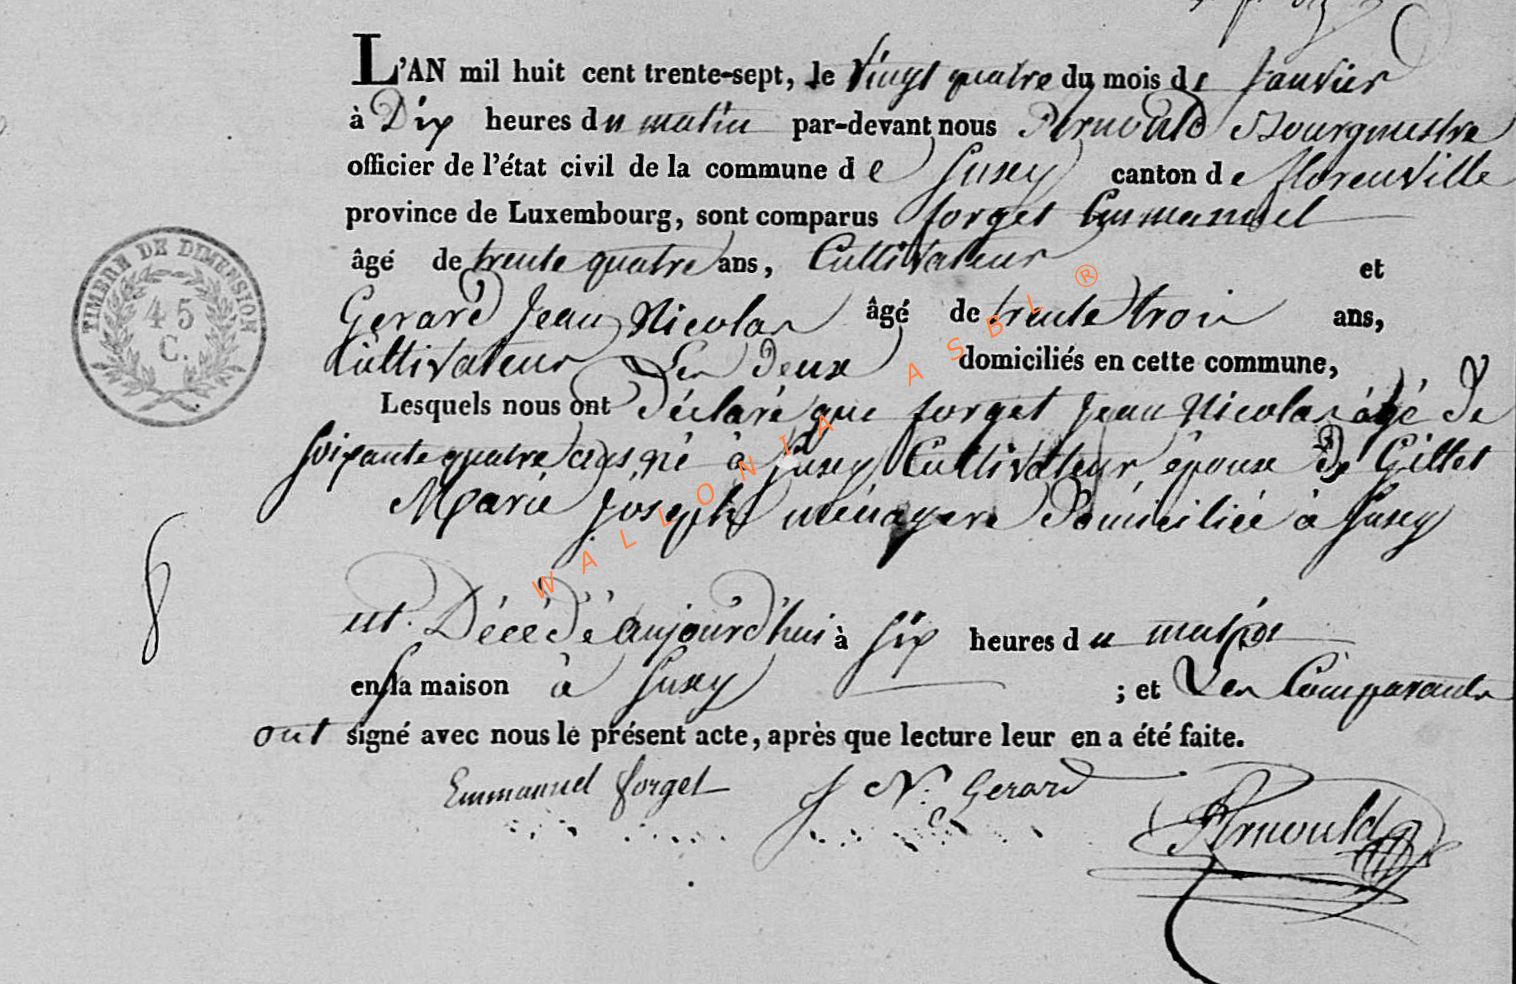 L'AN mil huit cent trente-sept, le vingt quatre du mois de Janvier
à Dix heures du matin par-devant nous Arnould Bourgmestre
officier de l'état civil de la commune de Suxy canton de florenville
province de Luxembourg, sont comparus forget Emmanuel
âgé de trente quatre ans, Cultivateur et
Gerard Jean Nicolas âgé de trente trois ans,
Cultivateur Les deux domiciliés en cette commune,
Lesquels nous ont déclaré que forget Jean Nicolas âgé de
soixante quatre ans, né à Suxy Cultivateur époux de Gillet
Marie Joseph ménagere Domiciliée à Suxy
est Décédé aujourd'hui à six heures du matin
en sa maison à Suxy ; et Les Comparants
ont signé avec nous le présent acte, après que lecture leur en a été faite.
Emmanuel forget J N. Gerard
Arnould
TIMBRE DE DIMENSION
45
C.
WALLONIA ASBL ®
8